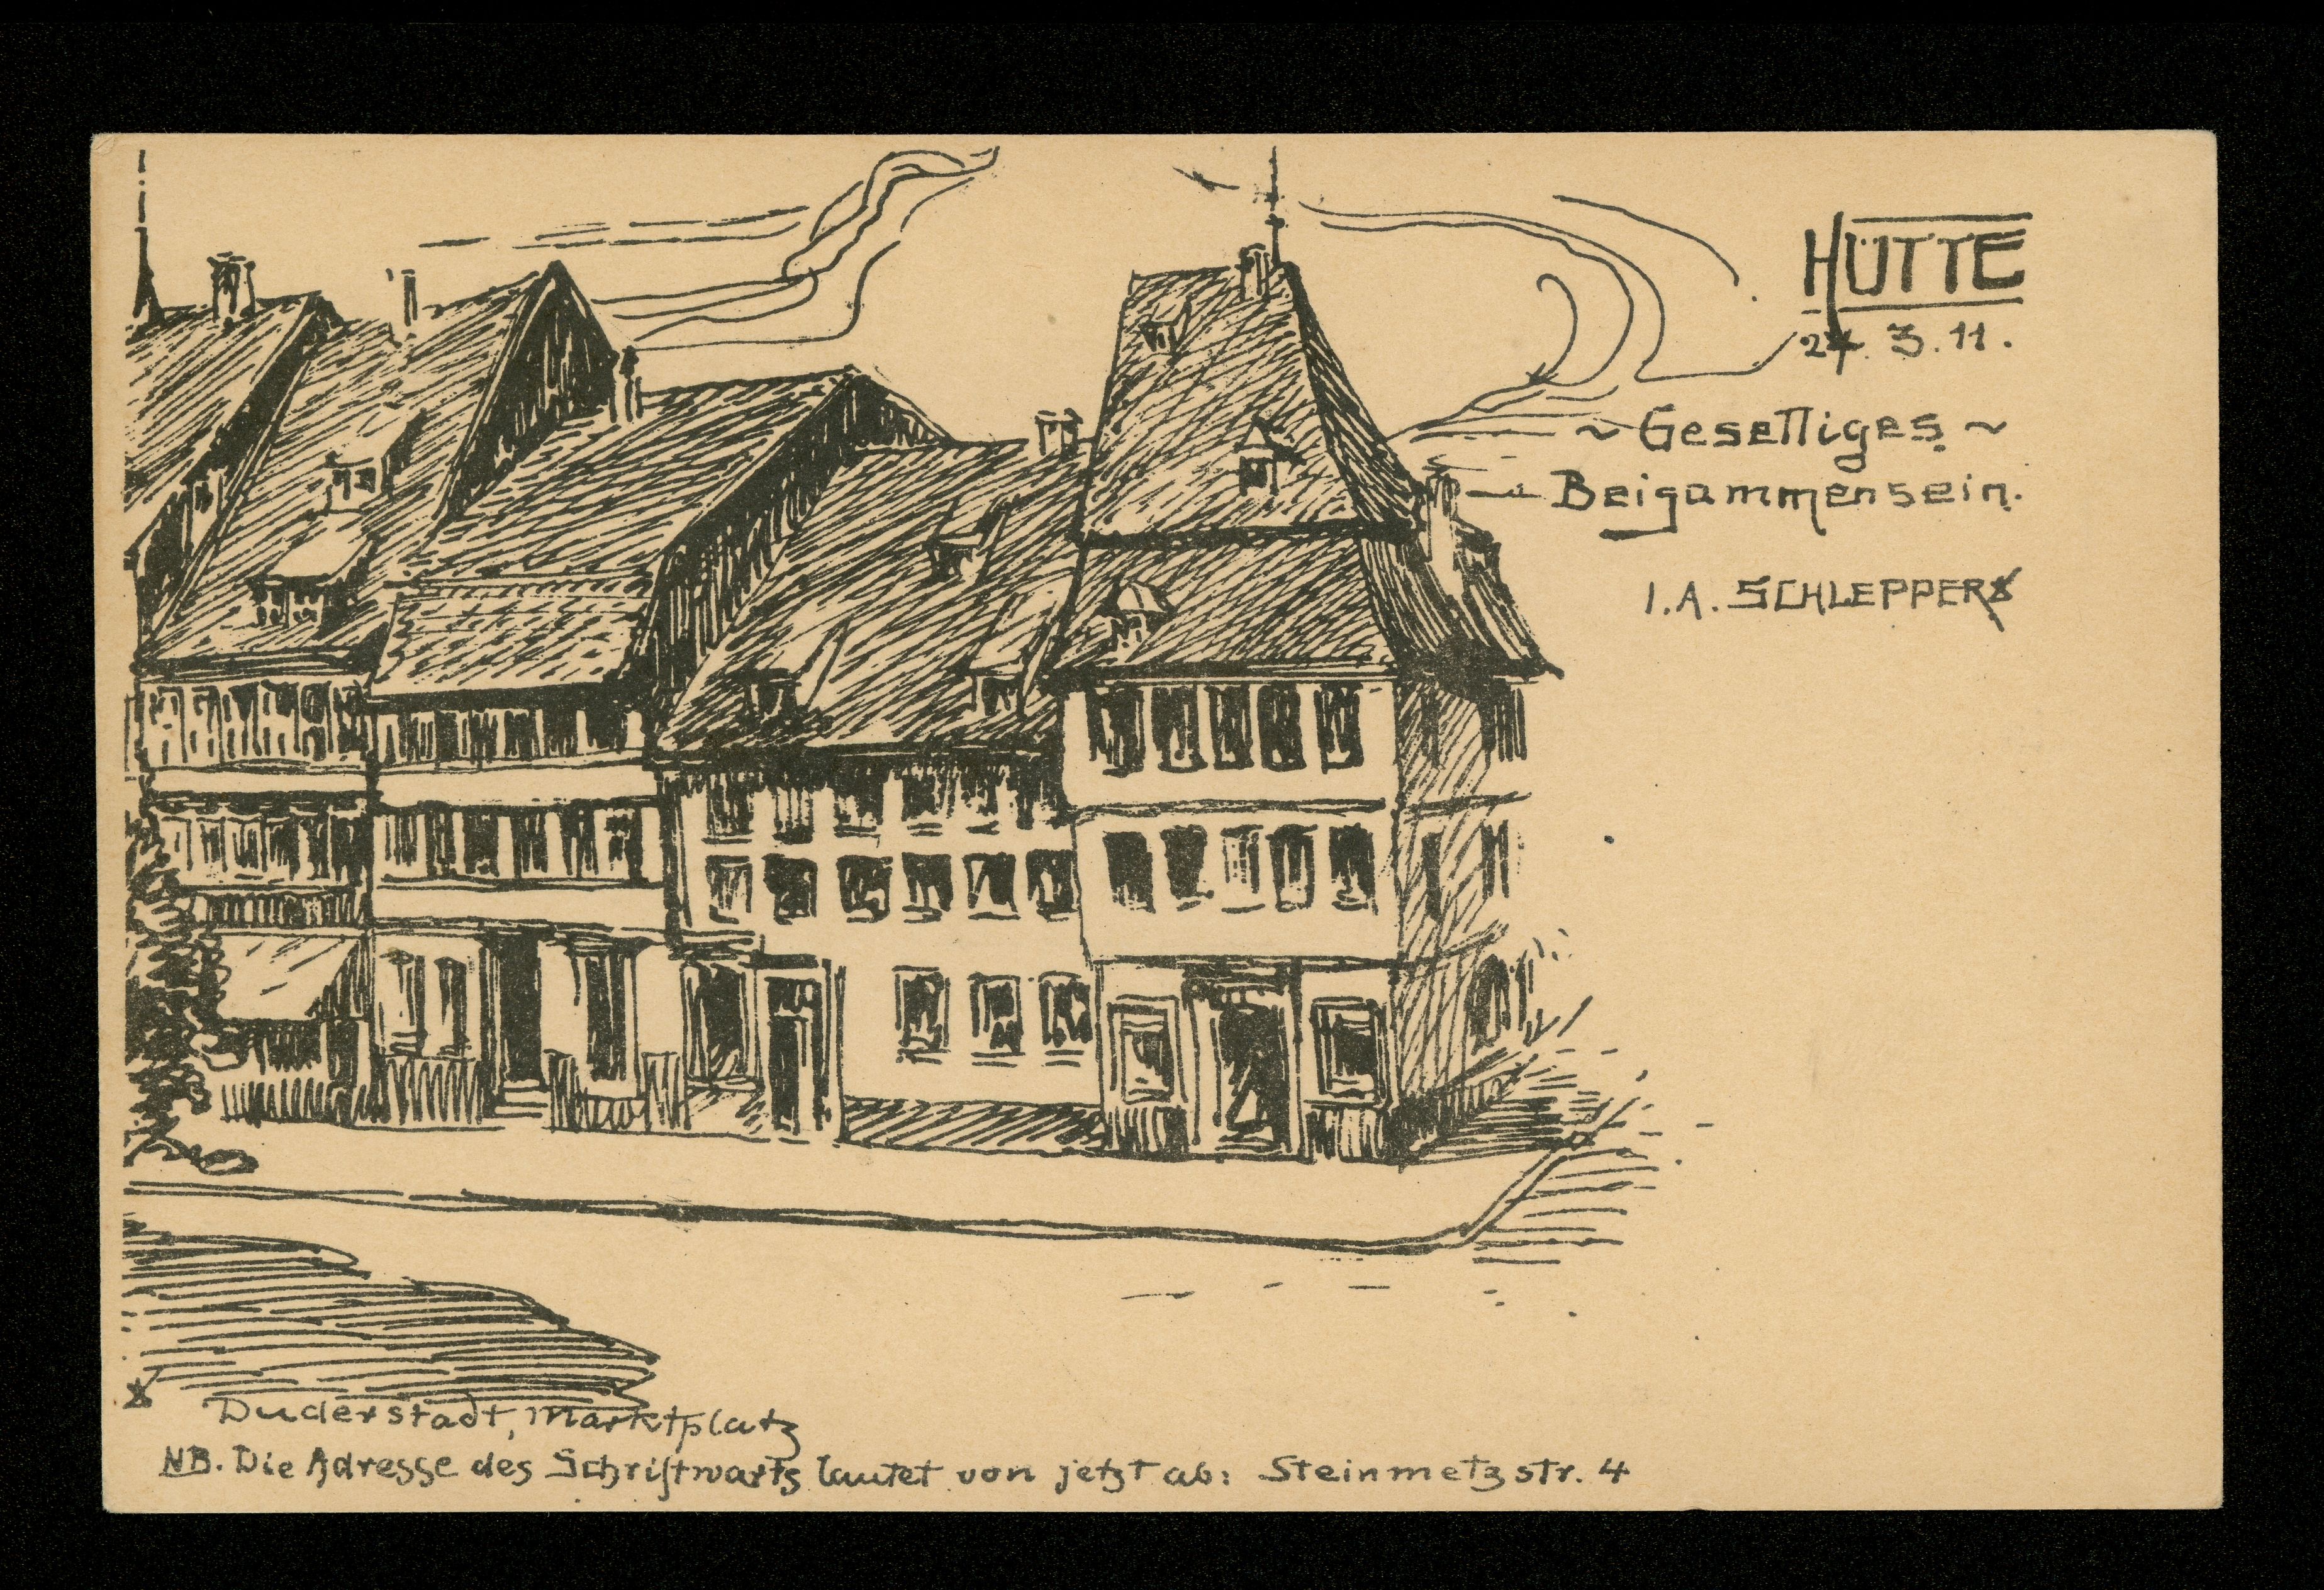 HÜTTE
24. 3. 11.
~ Geselliges ~
Beisammensein.
I. A. SCHLEPPER
Duderstadt, Marktplatz
NB. Die Adresse des Schriftwarts lautet von jetzt ab: Steinmetzstr. 4